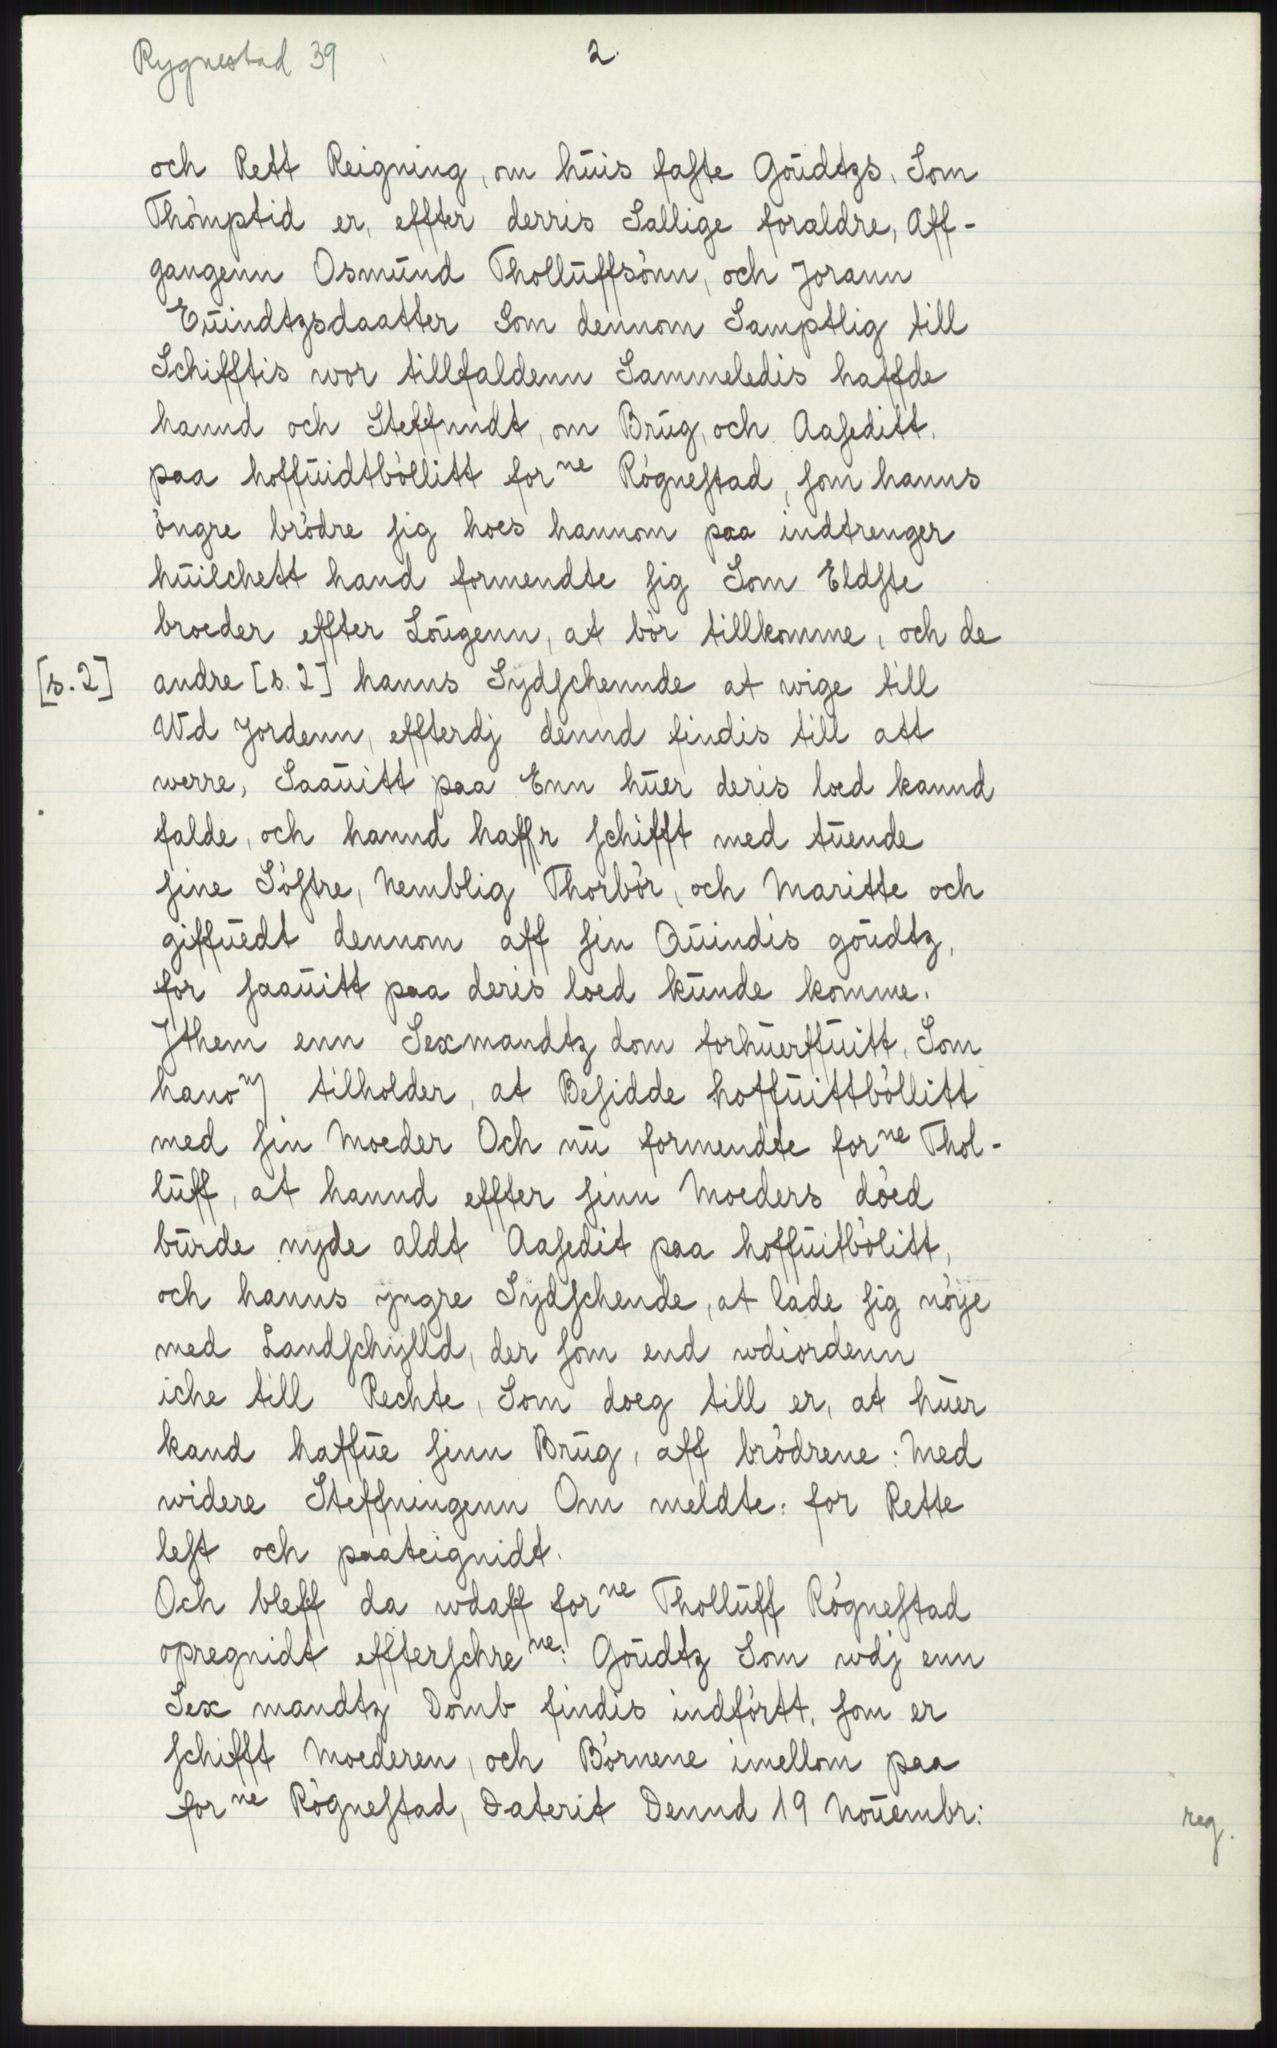 Rygnestad 39
2.
och Rett Reigning, om huis faste Goudtzs. Som
Thòmptid er, effter derris Sallige foraldre, Aff-
gangenn Osmund Tholluffsònn, och Jorann
Euindtzsdaatter Som dennom Samptlig till
Schifftis wor tillfaldenn Sammeledis haffde
hannd och Steffnndt, om Brug, och Aaseditt.
paa hoffuidtbòllitt for ne Rògnestad, som hanns
òngre bròdre sig hoes hannom paa indtrenger
huilchett hand formendte sig Som Eldste
broeder effter Lougenn, at bòr tillkomme, och de
[s. 2] andre [s. 2] hanns Sydschennde at wige till
Wd Jordenn, effterdj dennd findis till att
werre, Saauitt paa Enn huer deris loed kannd
falde, och hannd haffr schifft med tuende
sine Sòstre, Nemblig Thorbòr, och Maritte och
giffuedt dennom aff sin Quindis goudtz,
for saauitt paa deris loed kunde komme.
Jthem enn Sexmandtz dom forhuerffuitt. Som
hano m tilholder, at Besidde hoffuittbòllitt
med sin Moeder Och nu formendte for ne Thol-
luff, at hannd effter sinn Moeders dòed
burde nyde aldt Aasedit paa hoffuitbòlitt,
och hanns yngre Sydschende, at lade sig nòye
med Landschylld, der som end wdiordenn
iche till Rechte, Som doeg till er, at huer
kand haffue sinn Brug, aff bròdrene: Med
widere Steffningenn Om meldte: for Rette
lest och paateignidt.
Och bleff da wdaff for ne Tholluff Rògnestad
opregnidt effterschre ne: Goudtz Som wdj enn
Sex mandtz Domb findis indfòrtt, som er
schifft Moederen, och Bòrnene imellom paa
for ne Rògnestad, Daterit Dennd 19 Nouembr:
reg.